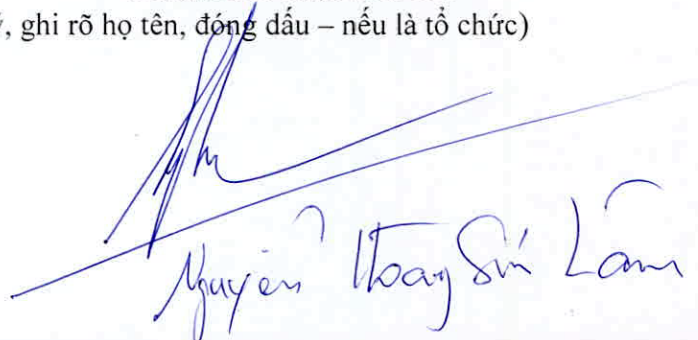 , ghi rõ họ tên, đóng dấu – nếu là tổ chức)
Nguyễn Hoàng Sĩ Lâm